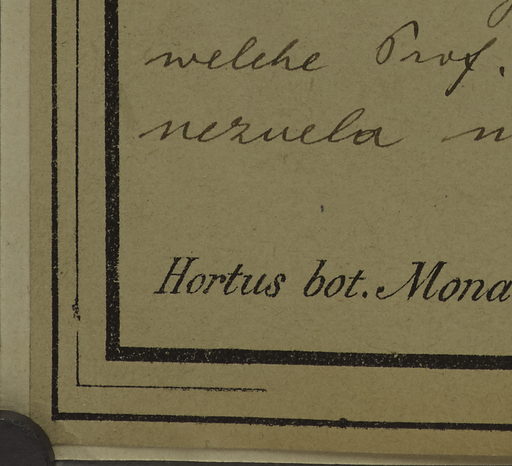 welche Prof.
nezuela
Hortus bot. Mona